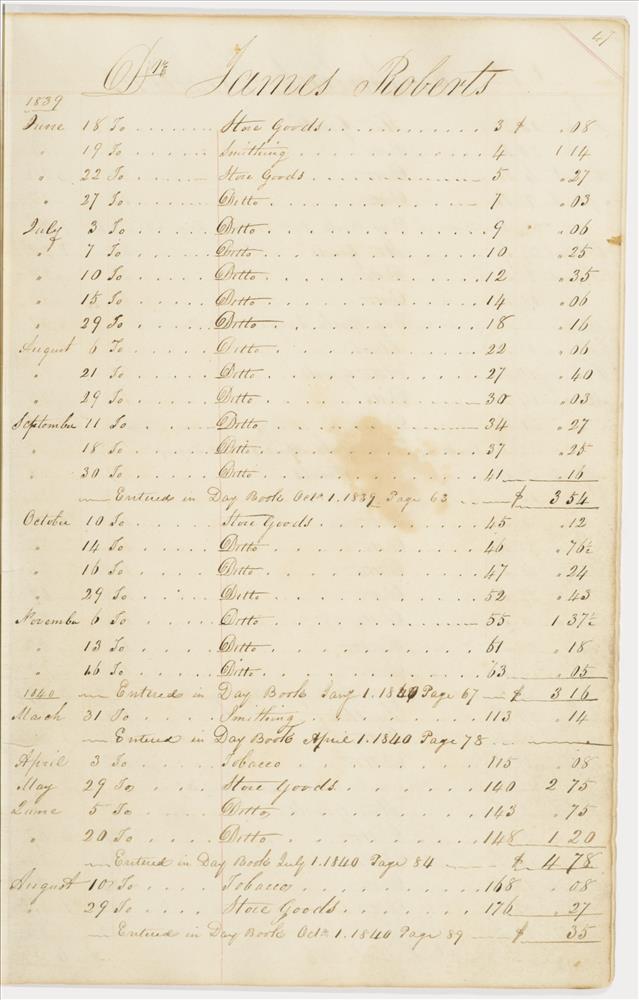 47
Dr. James Roberts
1839
June 18 To ....... Store Goods ............ 3 $ .08
" 19 To ....... Smithing ............ 4 1 14
" 22 To ....... Store Goods ............ 5 .27
" 27 To ....... Ditto ............ 7 .03
July 3 To ....... Ditto ............ 9 .06
" 7 To ....... Ditto ............ 10 .25
" 10 To ....... Ditto ............ 12 .35
" 15 To ....... Ditto ............ 14 .06
" 29 To ....... Ditto ............ 18 .16
August 6 To ....... Ditto ............ 22 .06
" 21 To ....... Ditto ............ 27 .40
" 29 To ....... Ditto ............ 30 .03
September 11 To ....... Ditto ............ 34 .27
" 18 To ....... Ditto ............ 37 .25
" 30 To ....... Ditto ............ 41 .16
— Entered in Day Book Octr 1. 1839 Page 63 — $ 3 54
October 10 To ....... Store Goods ............ 45 .12
" 14 To ....... Ditto ............ 46 .76½
" 16 To ....... Ditto ............ 47 .24
" 29 To ....... Ditto ............ 52 .43
November 6 To ....... Ditto ............ 55 1 37½
" 13 To ....... Ditto ............ 61 .18
" 16 To ....... Ditto ............ 63 .05
1840 — Entered in Day Book Jany 1. 1840 Page 67 — $ 3 16
March 31 To ....... Smithing ............ 113 .14
— Entered in Day Book April 1. 1840 Page 78 —
April 3 To ....... Tobacco ............ 115 .08
May 29 To ....... Store Goods ............ 140 2 75
June 5 To ....... Ditto ............ 143 .75
" 20 To ....... Ditto ............ 148 1 20
— Entered in Day Book July 1. 1840 Page 84 — $ 4 78
August 10 To ....... Tobacco ............ 168 .08
" 29 To ....... Store Goods ............ 176 .27
— Entered in Day Book Octr 1. 1840 Page 89 — $ 35